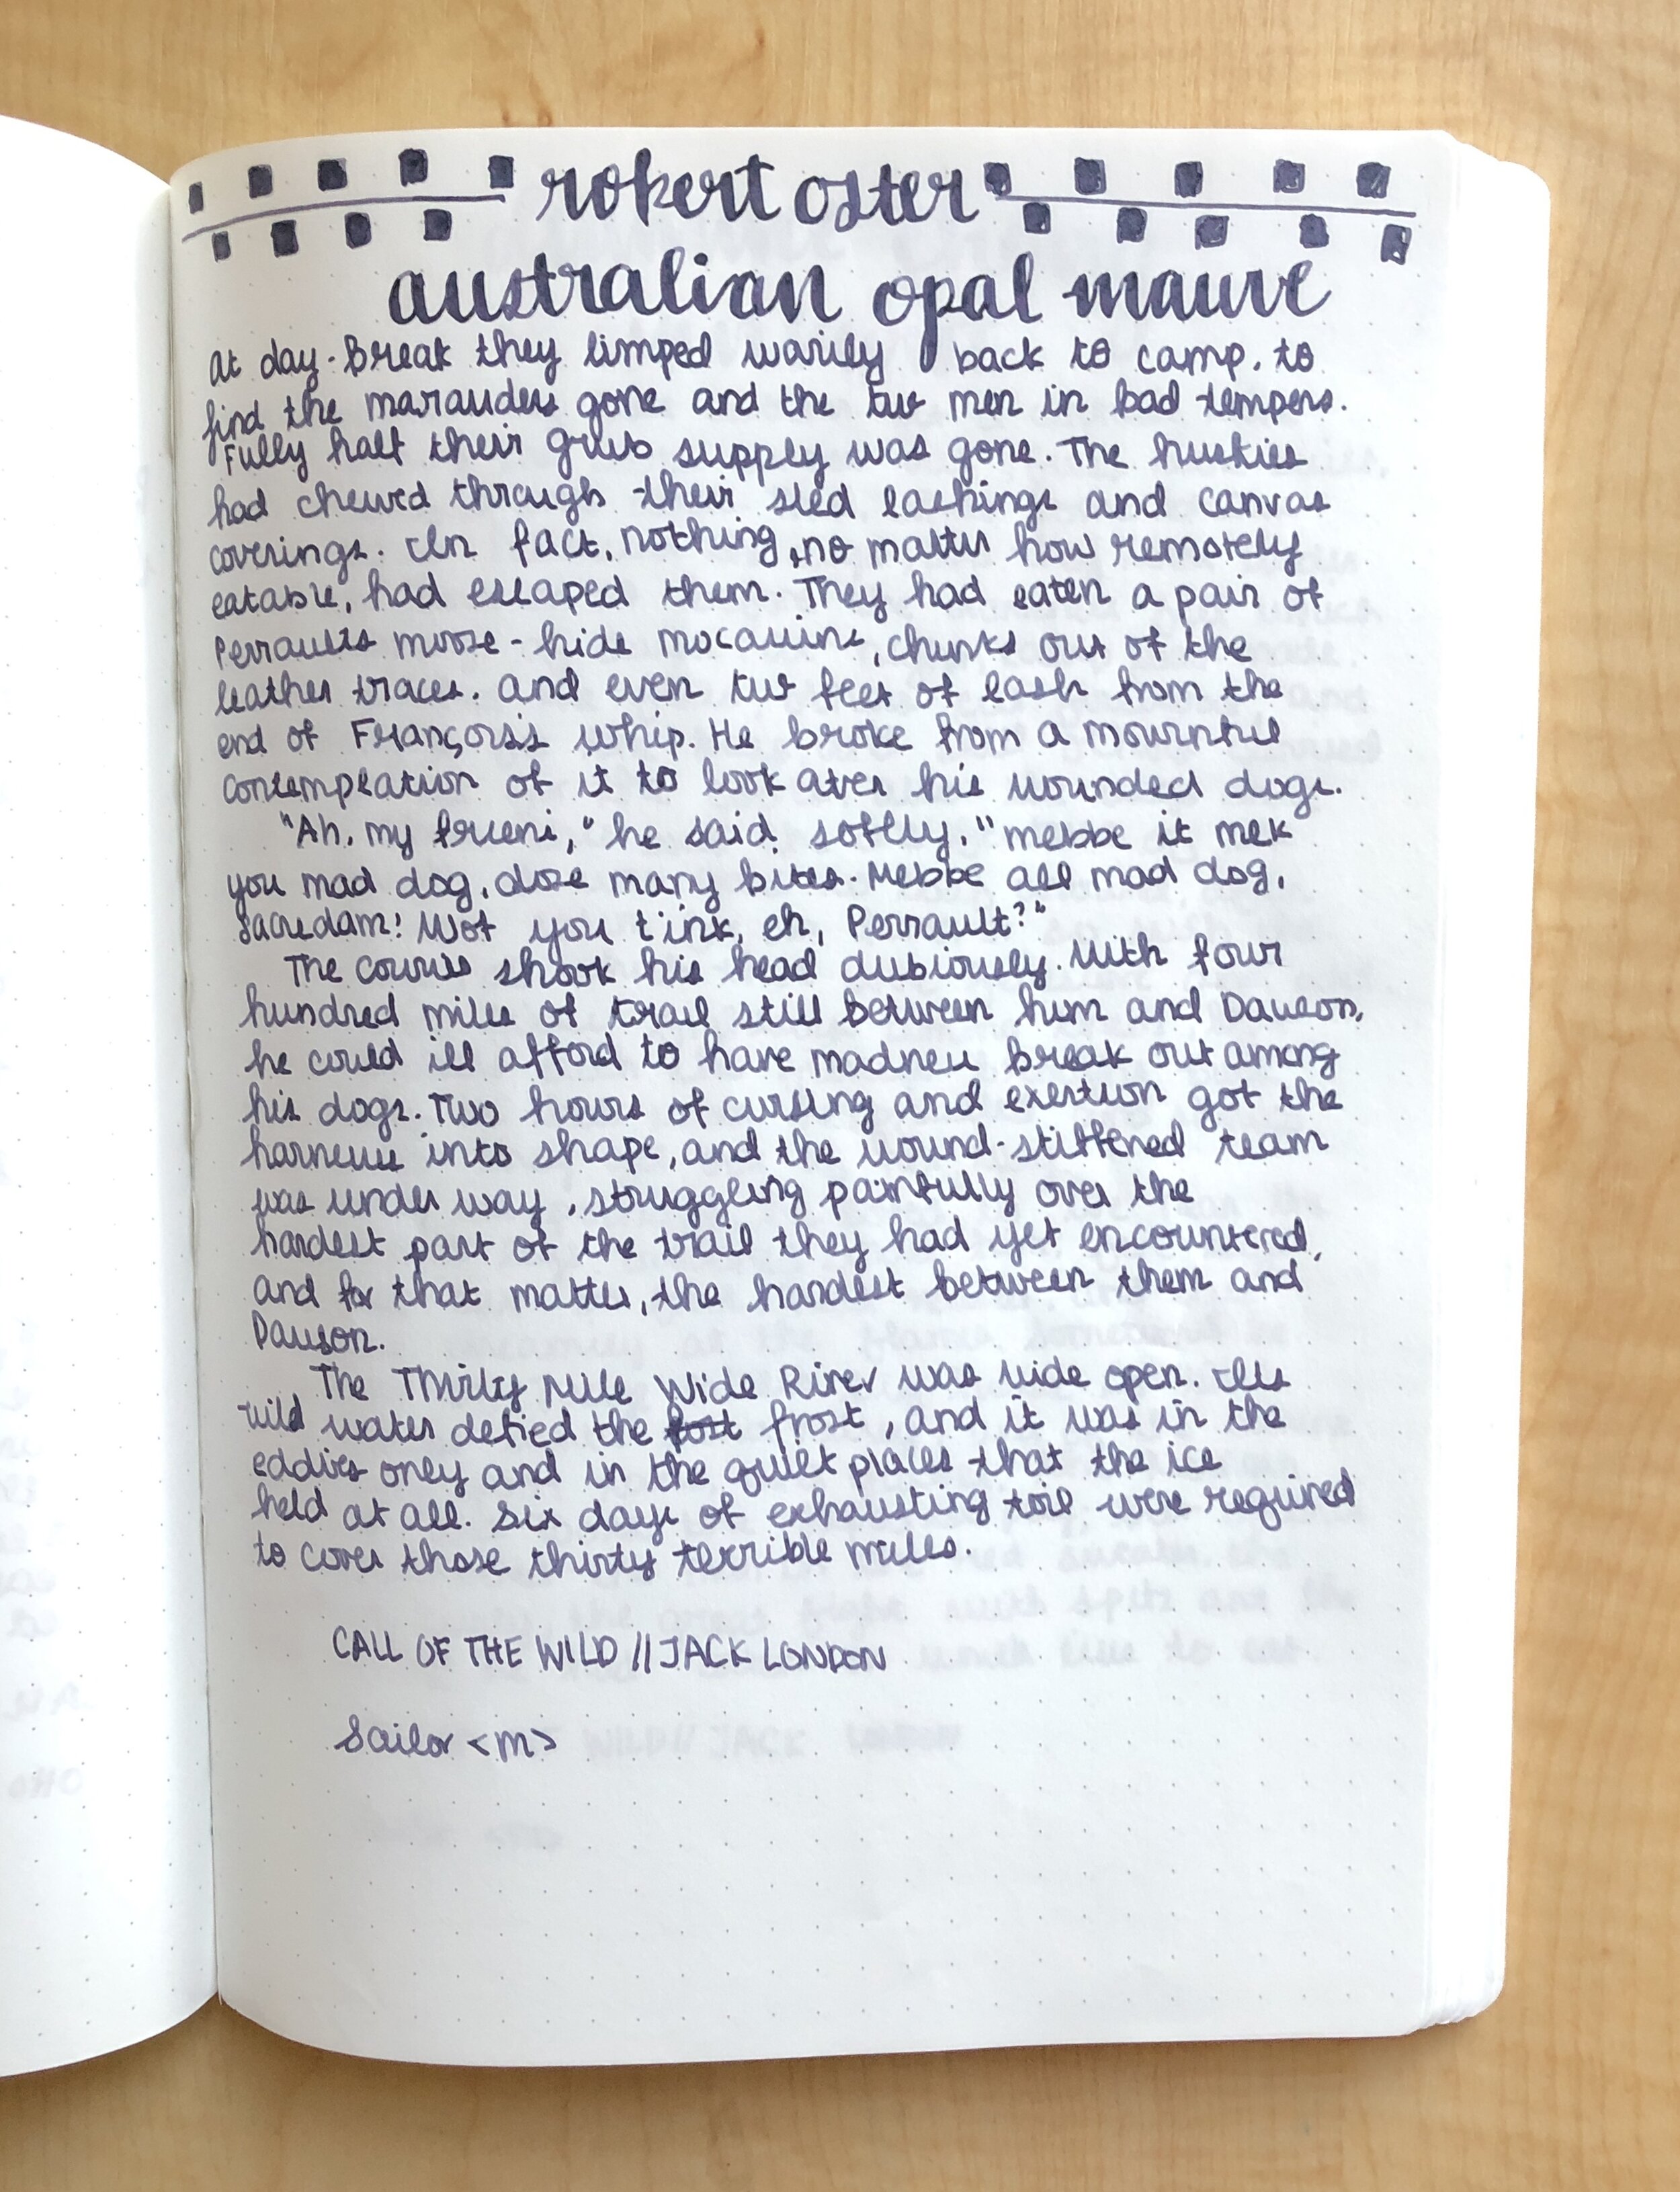 robert oster
australian opal mauve
At day-break they limped warily back to camp, to
find the marauders gone and the two men in bad tempers.
Fully half their grub supply was gone. The huskies
had chewed through their sled lashings and canvas
coverings. In fact, nothing, no matter how remotely
eatable, had escaped them. They had eaten a pair of
Perrault's moose-hide mocassins, chunks out of the
leather traces, and even two feet of lash from the
end of François's whip. He broke from a mournful
contemplation of it to look over his wounded dogs.
"Ah, my frieni," he said softly, "mebbe it mek
you mad dog, dose many bites. Mebbe all mad dog,
sacredam! Wot you t'ink, eh, Perrault?"
The courier shook his head dubiously. With four
hundred miles of trail still between him and Dawson,
he could ill afford to have madness break out among
his dogs. Two hours of cursing and exertion got the
harnesses into shape, and the wound-stiffened team
was under way, struggling painfully over the
hardest part of the trail they had yet encountered,
and for that matter, the hardest between them and
Dawson.
The Thirty Mile Wide River was wide open. Its
wild water defied the frost, and it was in the
eddies only and in the quiet places that the ice
held at all. Six days of exhausting toil were required
to cover those thirty terrible miles.
CALL OF THE WILD // JACK LONDON
Sailor <M>